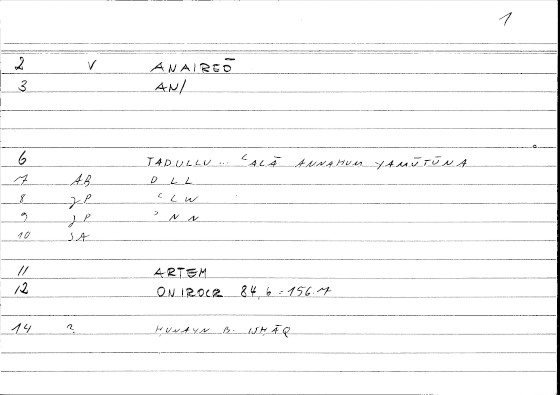 1
2 V ANAIREŌ
3 AN/
6 TADULLU ... ʿALĀ ANNAHUM YAMŪTŪNA
7 AB D L L
8 JP ʿ L W
9 JP ʾ N N
10 SA
11 ARTEM
12 ONIROCR 84,6 = 156.7
14 ? ḤUNAYN B. ISḤĀQ